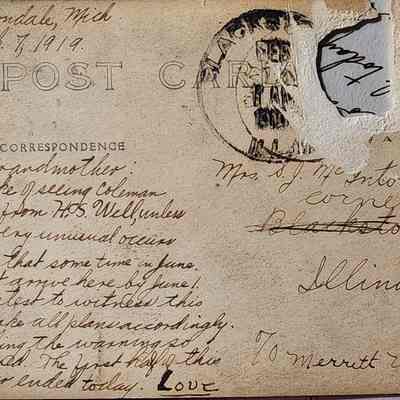 ondale, Mich
. 7, 1919.
POST CAR
CORRESPONDENCE
randmother:
e of seeing Coleman
from H.S. Well, unless
ery unusual occurs
that some time in June.
t arrive here by June 1.
test to witness this
ake all plans accordingly.
ing the warning so
The first half this
o ended today. Love
BLACKSTO
FEB
today
Mrs. S. J. McInto
Corne
Blacksto
Illino
To Merritt